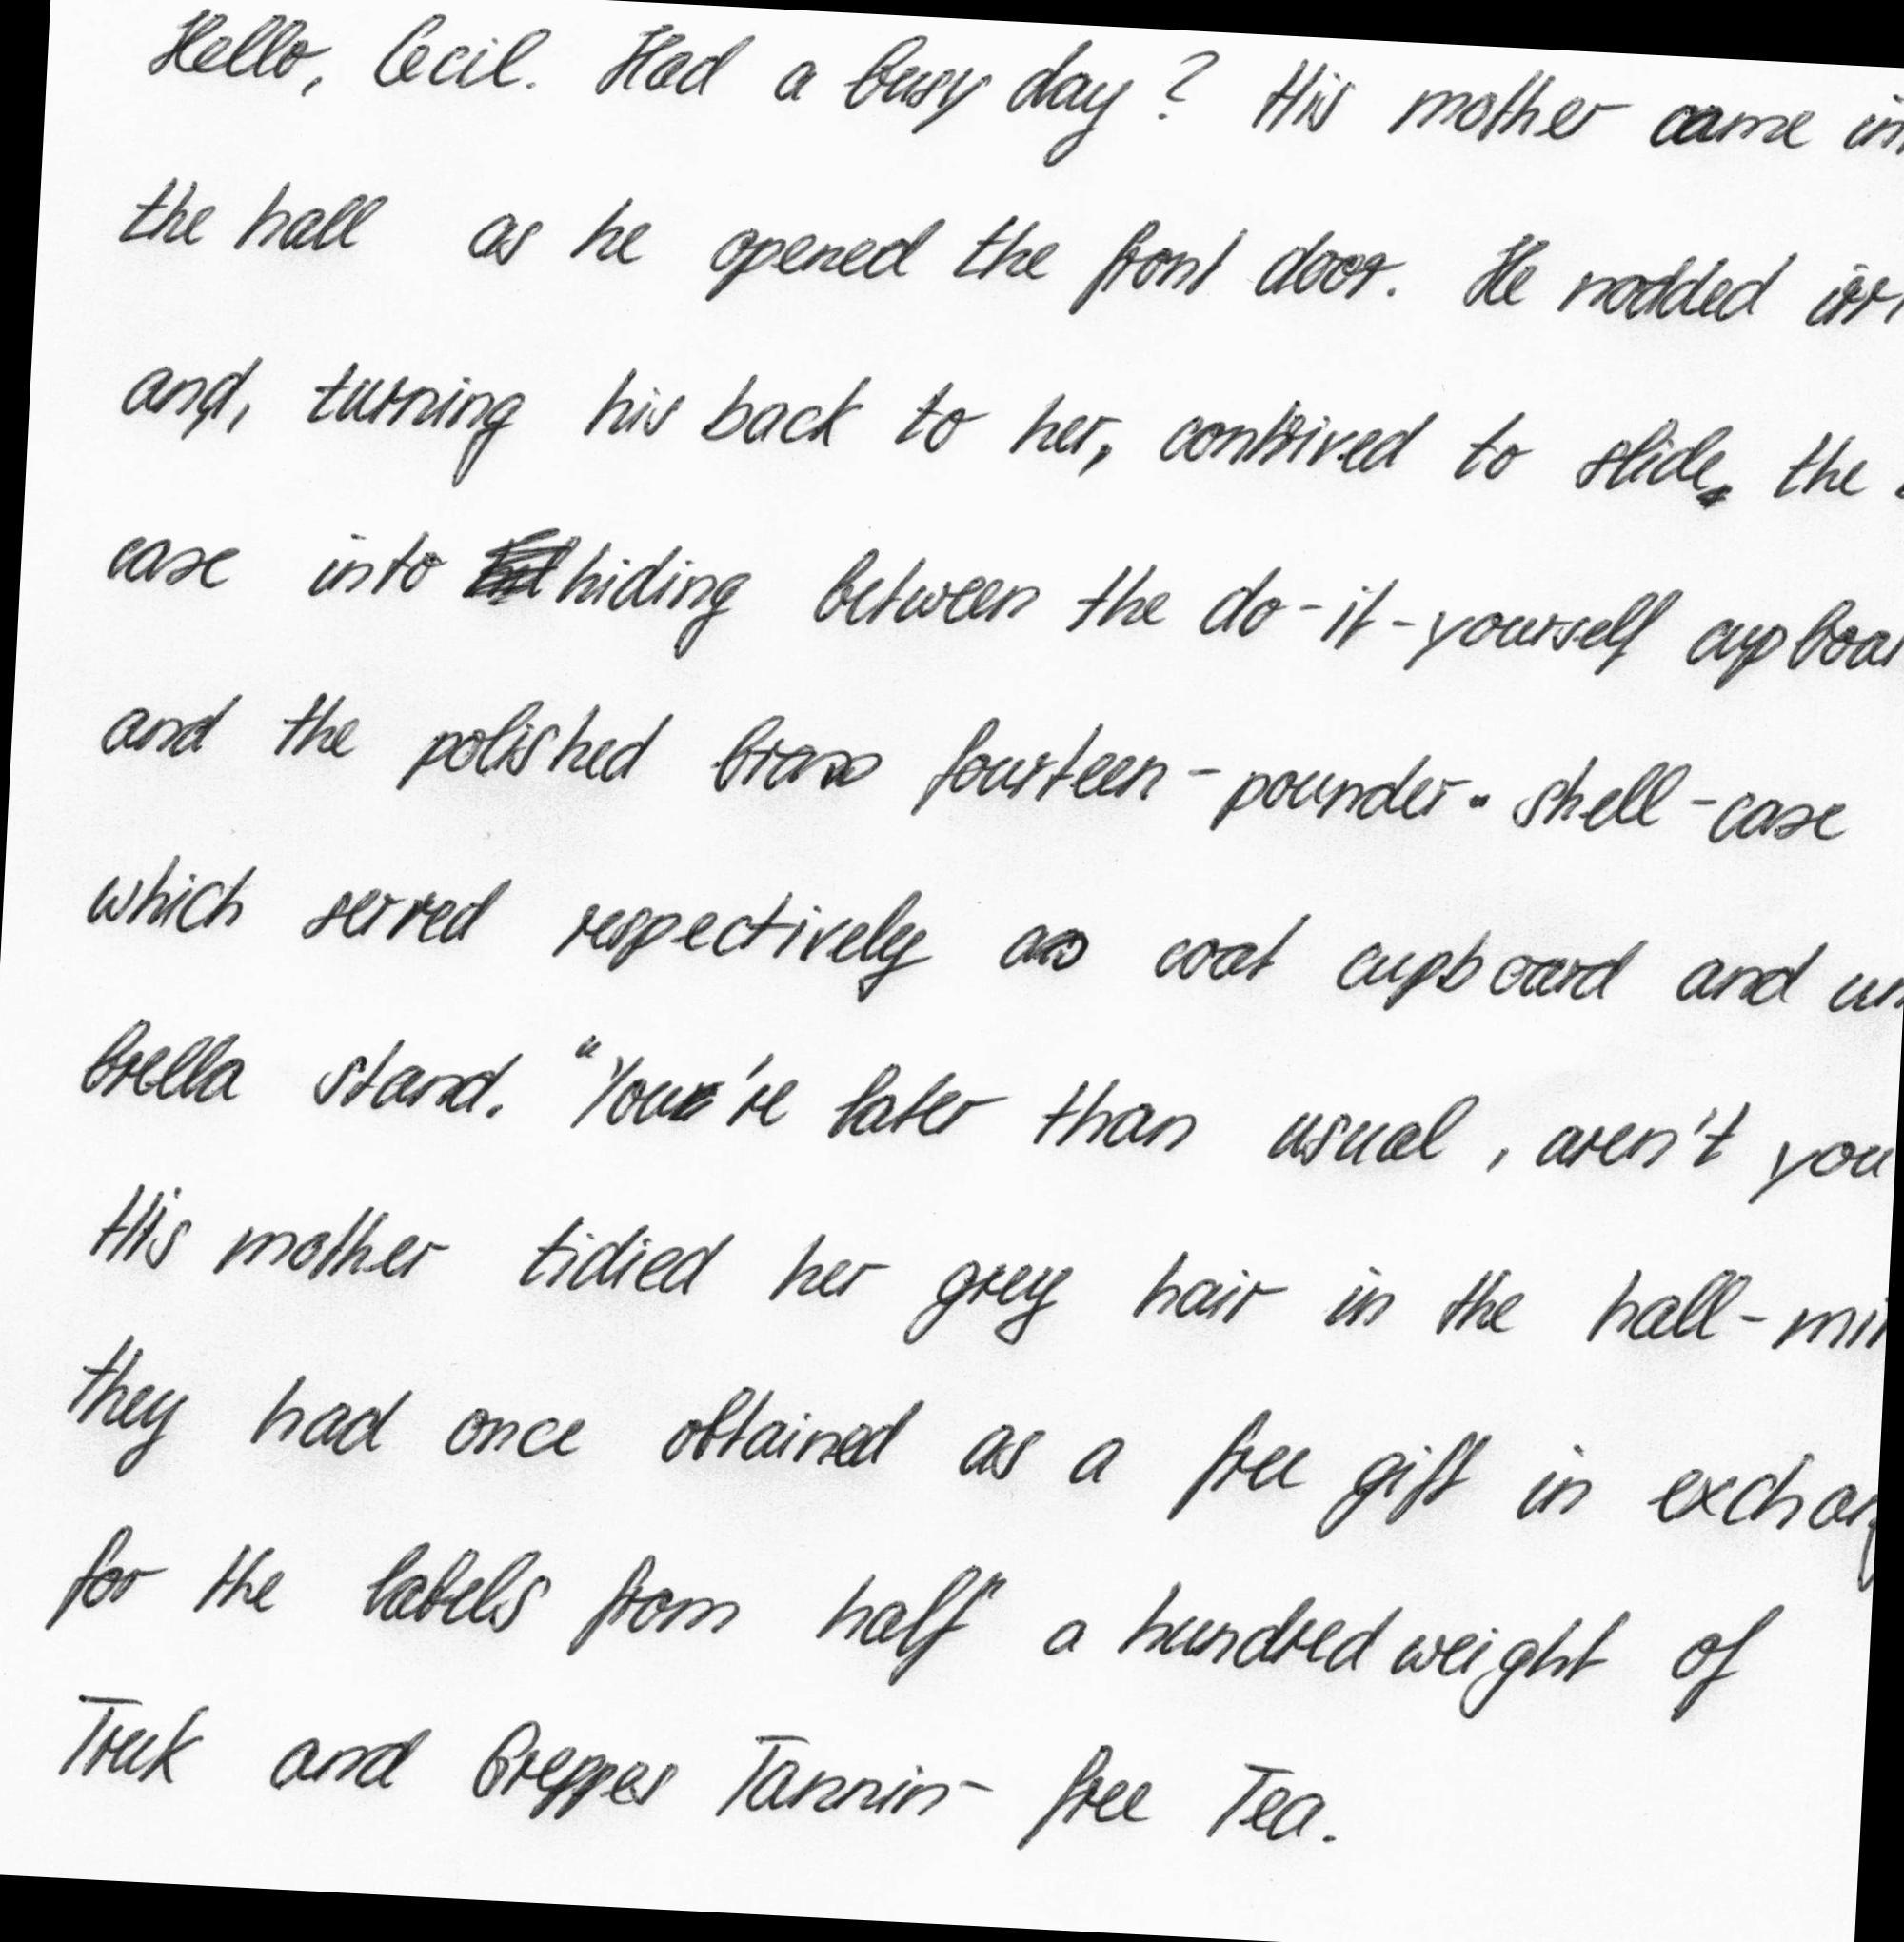 Hello, Cecil. Had a busy day? His mother came
the hall as he opened the front door. He nodded
and, turning his back to her, contrived to slide the
case into hiding between the do-it-yourself
and the polished brass fourteen-pounder shell-case
which served respectively as coat cupboard and um
brella stand. "You're later than usual, aren't you
His mother tidied her grey hair in the hall-
they had once obtained as a free gift in
for the labels from half a hundredweight of
Truk and Greppes Tannin-free Tea.